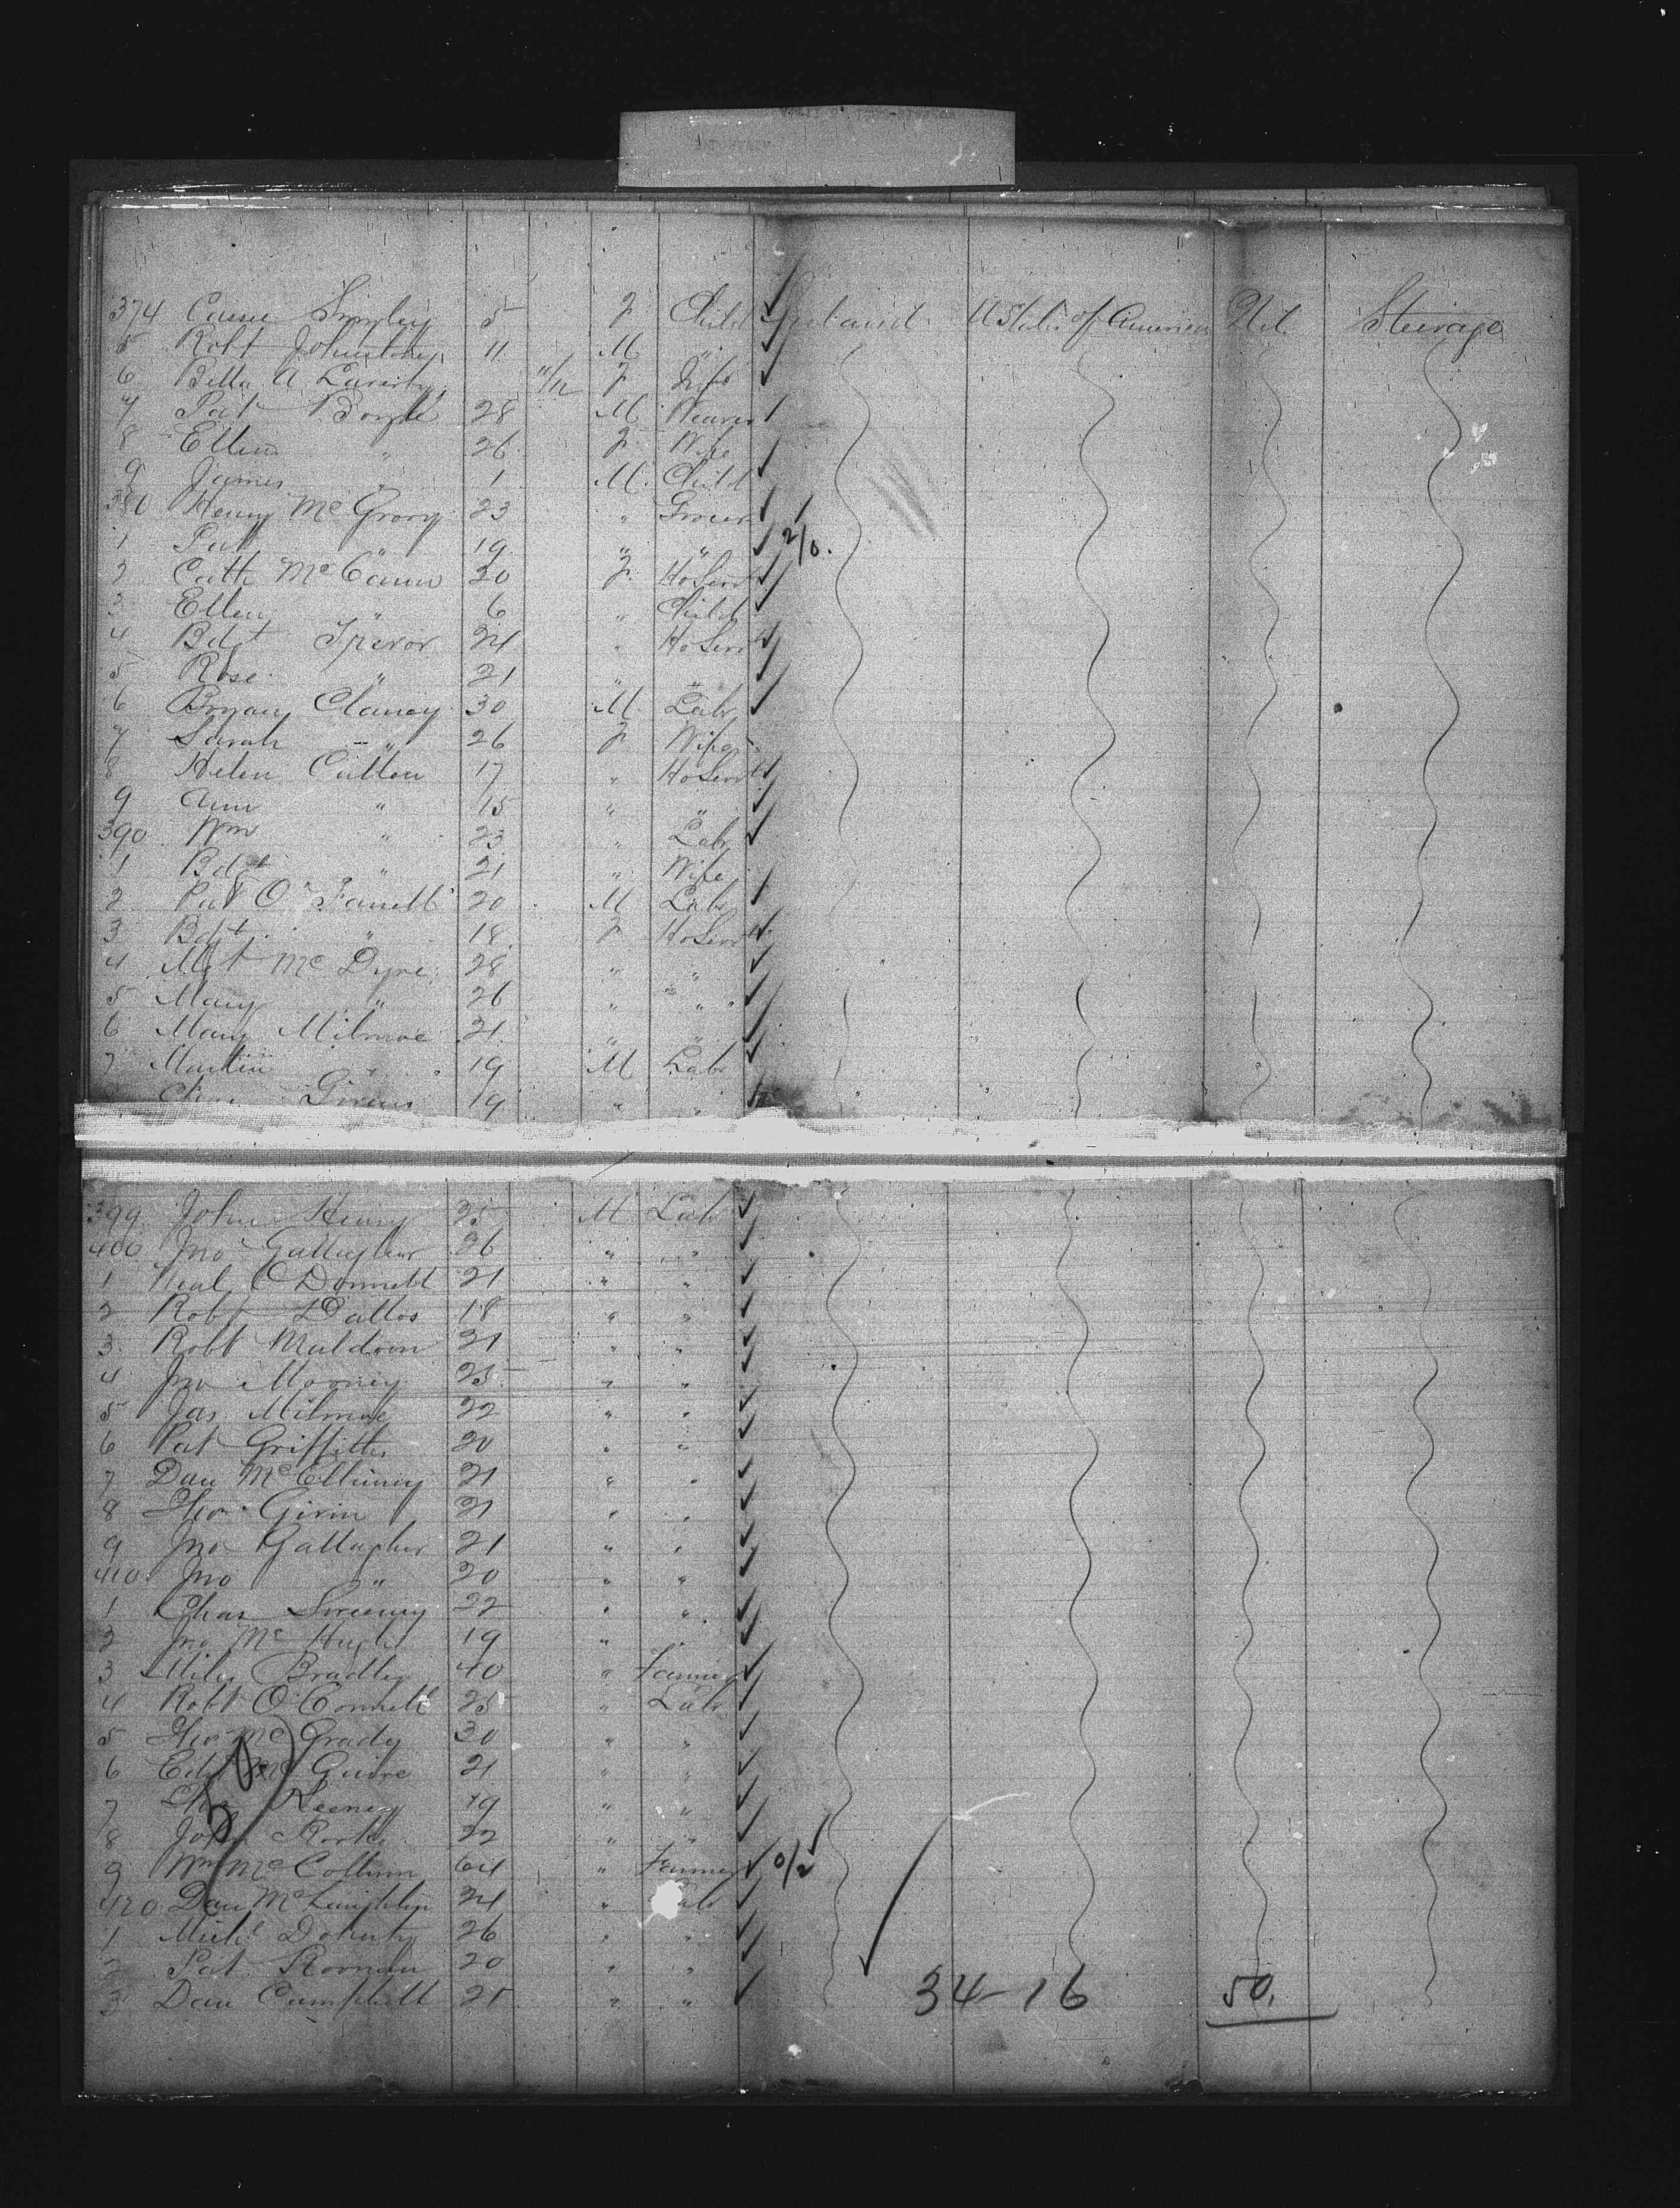 374 Cassie Smyley 5 F Child Ireland U States of America Nil Steerage
5 Robt Johnston 11 M "
6 Bella A Laverty 11/12 F Inft
7 Pat Boyle 28 M Weaver
8 Ellen " 26 F Wife
9 James " 1 M Child
380 Henry McGrory 23 " Grocer
1 Pat " 19 " " 2/0.
2 Cath McCann 20 F HoServt
3 Ellen " 6 " Child
4 Bdgt Trevor 24 " HoServt
5 Rose " 21 " "
6 Bryan Clancy 30 M Labr
7 Sarah " 26 F Wife
8 Helen Cullen 17 " HoServt
9 Ann " 15 " "
390 Wm " 23 " Labr
1 Bdgt " 21 " Wife
2 Pat O'Farrell 20 M Labr
3 Bdgt " 18 F HoServt
4 Mgt McDyre 28 " "
5 Mary " 26 " "
6 Mary Milmoe 21 " "
7 Martin " 19 M Labr
Givens 19 " "
399 John Henry 25 M Labr
400 Jno Gallagher 26 " "
1 Neal O'Donnell 21 " "
2 Robt Dallos 18 " "
3 Robt Muldoon 21 " "
4 Jno Mooney 25 " "
5 Jas Milmoe 22 " "
6 Pat Griffiths 20 " "
7 Dan McElhinney 21 " "
8 Girvin 21 " "
9 Jno Gallagher 21 " "
410 Jno " 20 " "
1 Chas Sweeney 22 " "
2 Jno McHugh 19 " "
3 Miles Bradley 40 " Farmer
4 Robt O'Connell 25 " Labr
5 McGrady 30 " "
6 Edwd McGuire 21 " "
7 Keeney 19 " "
8 John Rorke 22 " "
9 Wm McCollum 64 " Farmer 0/2
420 Dan McLaughlin 24 " Labr
1 Michl Doherty 26 " "
2 Pat 20 " "
3 Dan Campbell 25 " "
34-16 50.